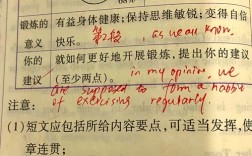 锻炼的 有益身体健康;保持思维敏锐;变得自信
意义 快乐。 第2段 as we all know.
你的 就如何更好地开展锻炼,提出你的建议
建议 (至少两点)。 in my opinion, we
are supposed to form a habit
注意: of exercising regularly.
(1)短文应包括所给内容要点,可适当发挥,使
章连贯;